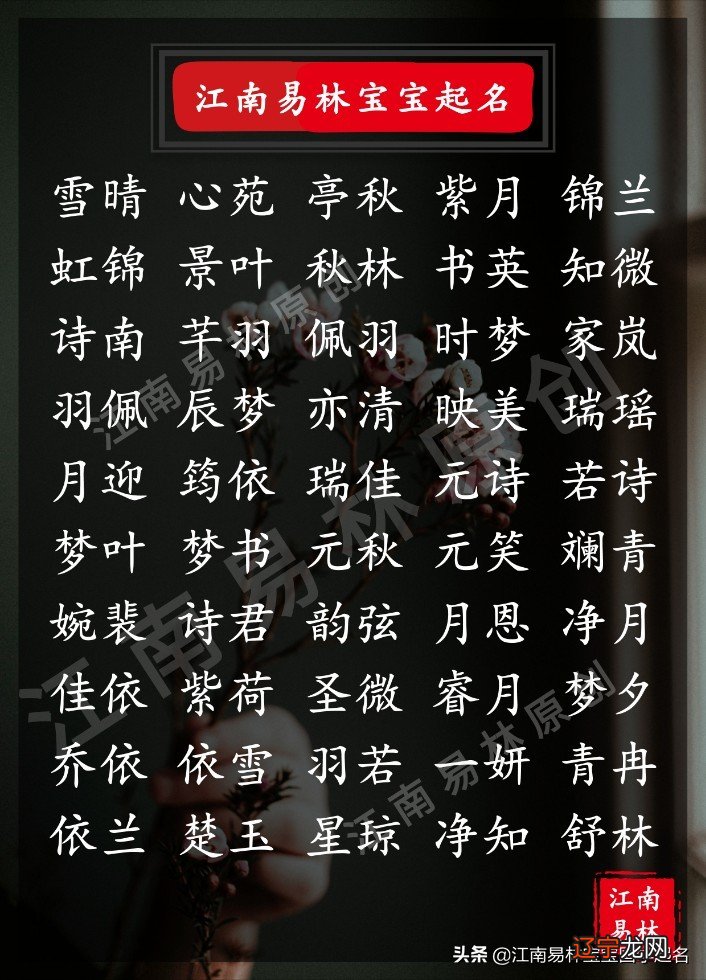 江南易林宝宝起名
雪晴 心苑 亭秋 紫月 锦兰
虹锦 景叶 秋林 书英 知微
诗南 芊羽 佩羽 时梦 家岚
羽佩 辰梦 亦清 映美 瑞瑶
月迎 筠依 瑞佳 元诗 若诗
梦叶 梦书 元秋 元笑 斓青
婉裴 诗君 韵弦 月恩 净月
佳依 紫荷 圣微 睿月 梦夕
乔依 依雪 羽若 一妍 青冉
依兰 楚玉 星琼 净知 舒林
江南易林原创
江南易林原创
江南易林原创
江南
易林
辽宁龙网
头条 @江南易林宝宝起名